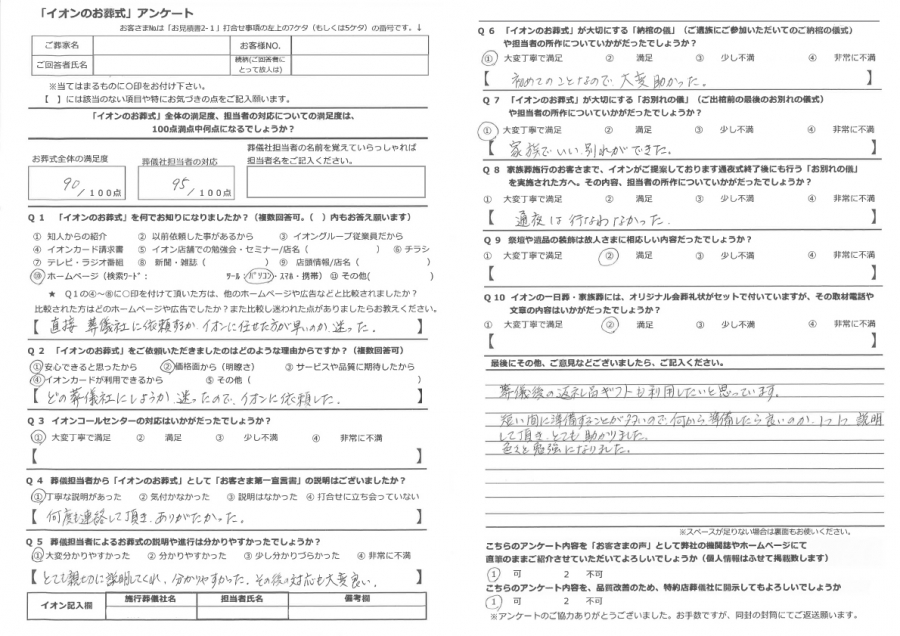 「イオンのお葬式」アンケート
お客さま№は「お見積書2-1」打合せ事項の左上の7ケタ（もしくは5ケタ）の番号です。↓
ご葬家名 お客様NO.
ご回答者氏名 続柄(ご回答者にとって故人は)
※当てはまるものに○印をお付け下さい。
【　】には該当のない項目や特にお気づきの点をご記入願います。
「イオンのお葬式」全体の満足度、担当者の対応についての満足度は、
100点満点中何点になるでしょうか？
お葬式全体の満足度 葬儀社担当者の対応 葬儀社担当者の名前を覚えていらっしゃれば
担当者名をご記入ください。
90 /100点 95 /100点
Q 1 「イオンのお葬式」を何でお知りになりましたか？（複数回答可。（　）内もお答え願います）
① 知人からの紹介 ② 以前依頼した事があるから ③ イオングループ従業員だから
④ イオンカード請求書 ⑤ イオン店舗での勉強会・セミナー/店名（　） ⑥ チラシ
⑦ テレビ・ラジオ番組 ⑧ 新聞・雑誌（　） ⑨ 店頭情報/店名（　）
⑩ ホームページ（検索ﾜｰﾄﾞ： ﾂｰﾙ・パソコン・ｽﾏﾎ・携帯） ⑪ その他(　)
★ Q1の④～⑧に○印を付けて頂いた方は、他のホームページや広告などと比較されましたか？
比較された方はどのホームページや広告でしたか？また比較し迷われた点がありましたらお教えください。
【 直接 葬儀社に依頼するか、イオンに任せた方が早いのか、迷った。 】
Q 2 「イオンのお葬式」をご依頼いただきましたのはどのような理由からですか？（複数回答可）
①安心できると思ったから ②価格面から（明瞭さ） ③ サービスや品質に期待したから
④イオンカードが利用できるから ⑤ その他（　）
【 どの葬儀社にしようか、迷ったので、イオンに依頼した。 】
Q 3 イオンコールセンターの対応はいかがだったでしょうか？
① 大変丁寧で満足 ② 満足 ③ 少し不満 ④ 非常に不満
【　】
Q 4 葬儀担当者から「イオンのお葬式」として「お客さま第一宣言書」の説明はございましたか？
①丁寧な説明があった ② 気付かなかった ③ 説明はなかった ④ 打合せに立ち会っていない
【 何度も連絡して頂き、ありがたかった。 】
Q 5 葬儀担当者によるお葬式の説明や進行は分かりやすかったでしょうか？
①大変分かりやすかった ② 分かりやすかった ③ 少し分かりづらかった ④ 非常に不満
【 とても親切に説明してくれ、分かりやすかった。その後の対応も大変良い。 】
イオン記入欄 施行葬儀社名 担当者氏名 備考欄
Q 6 「イオンのお葬式」が大切にする「納棺の儀」（ご遺族にご参加いただいてのご納棺の儀式）
や担当者の所作についていかがだったでしょうか？
① 大変丁寧で満足 ② 満足 ③ 少し不満 ④ 非常に不満
【 初めてのことなので、大変助かった。 】
Q 7 「イオンのお葬式」が大切にする「お別れの儀」（ご出棺前の最後のお別れの儀式）
や担当者の所作についていかがだったでしょうか？
① 大変丁寧で満足 ② 満足 ③ 少し不満 ④ 非常に不満
【 家族でいい別れができた。 】
Q 8 家族葬施行のお客さまで、イオンがご提案しております通夜式終了後にも行う「お別れの儀」
を実施された方へ。その内容、担当者の所作についていかがだったでしょうか？
① 大変丁寧で満足 ② 満足 ③ 少し不満 ④ 非常に不満
【 通夜は行なわなかった。 】
Q 9 祭壇や道品の装飾は故人さまに相応しい内容だったでしょうか？
① 大変丁寧で満足 ② 満足 ③ 少し不満 ④ 非常に不満
【　】
Q 10 イオンの一日葬・家族葬には、オリジナル会葬礼状がセットで付いていますが、その取材電話や
文章の内容はいかがだったでしょうか？
① 大変丁寧で満足 ② 満足 ③ 少し不満 ④ 非常に不満
【　】
最後にその他、ご意見などございましたら、ご記入ください。
葬儀後の返礼品ギフトも利用したいと思っています。
短い間に準備することが多いので、何から準備したら良いのか、1つ1つ 説明
して頂き、とても助かりました。
色々と勉強になりました。
※スペースが足りない場合は裏面もお使いください。
こちらのアンケート内容を「お客さまの声」として弊社の機関誌やホームページにて
直筆のままご紹介させていただいてよろしいでしょうか（個人情報はふせて掲載致します）
1 可 2 不可
こちらのアンケート内容を、品質改善のため、特約店葬儀社に開示してもよろしいでしょうか
1 可 2 不可
※アンケートのご協力ありがとうございました。お手数ですが、同封の封筒にてご返送願います。